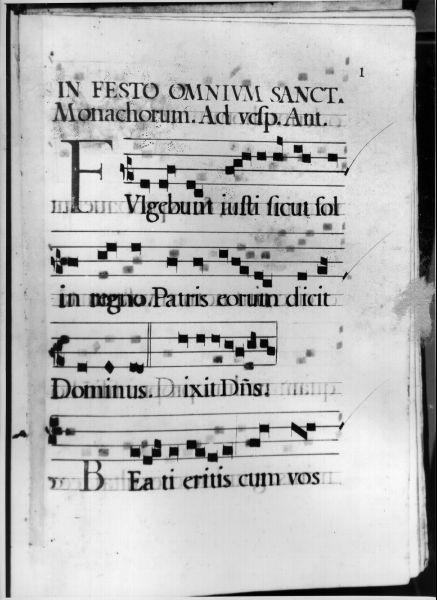 1
IN FESTO OMNIVM SANCT.
Monachorum. Ad vesp. Ant.
FVlgebunt iusti sicut sol
in regno Patris eorum dicit
Dominus. Dixit Dñs.
BEati eritis cum vos